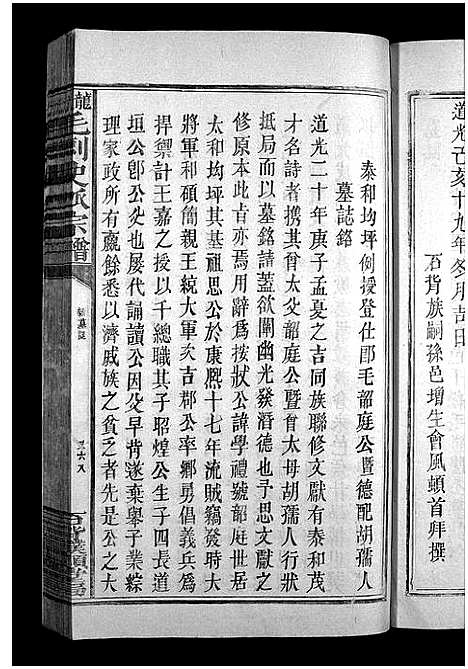 道光己亥十九年冬月吉日
石背族嗣孫邑增生會風頓首拜撰
泰和均坪例授登仕郎毛韶庭公暨德配胡孺人
墓誌銘
道光二十年庚子孟夏之吉同族聯修文獻有泰和茂
才名詩者攜其曾大父韶庭公暨曾大母胡孺人行狀
抵局而以墓銘請蓋欲闡幽光發潛德也予思文獻之
修原本此旨亦焉用辭爲按狀公諱學禮號韶庭世居
太和均坪其基祖思公於康熙十七年流賊竊發時大
將軍和碩簡親王統大軍次吉郡公率鄉勇倡義兵爲
捍禦計王嘉之授以千總職其子昭煌公生子四長道
垣公卽公父也屢代誦讀公因父早背遂棄舉子業大
理家政所有贏餘悉以濟戚族之貧乏者先是公之大
龍
毛列史派宗譜
墓誌